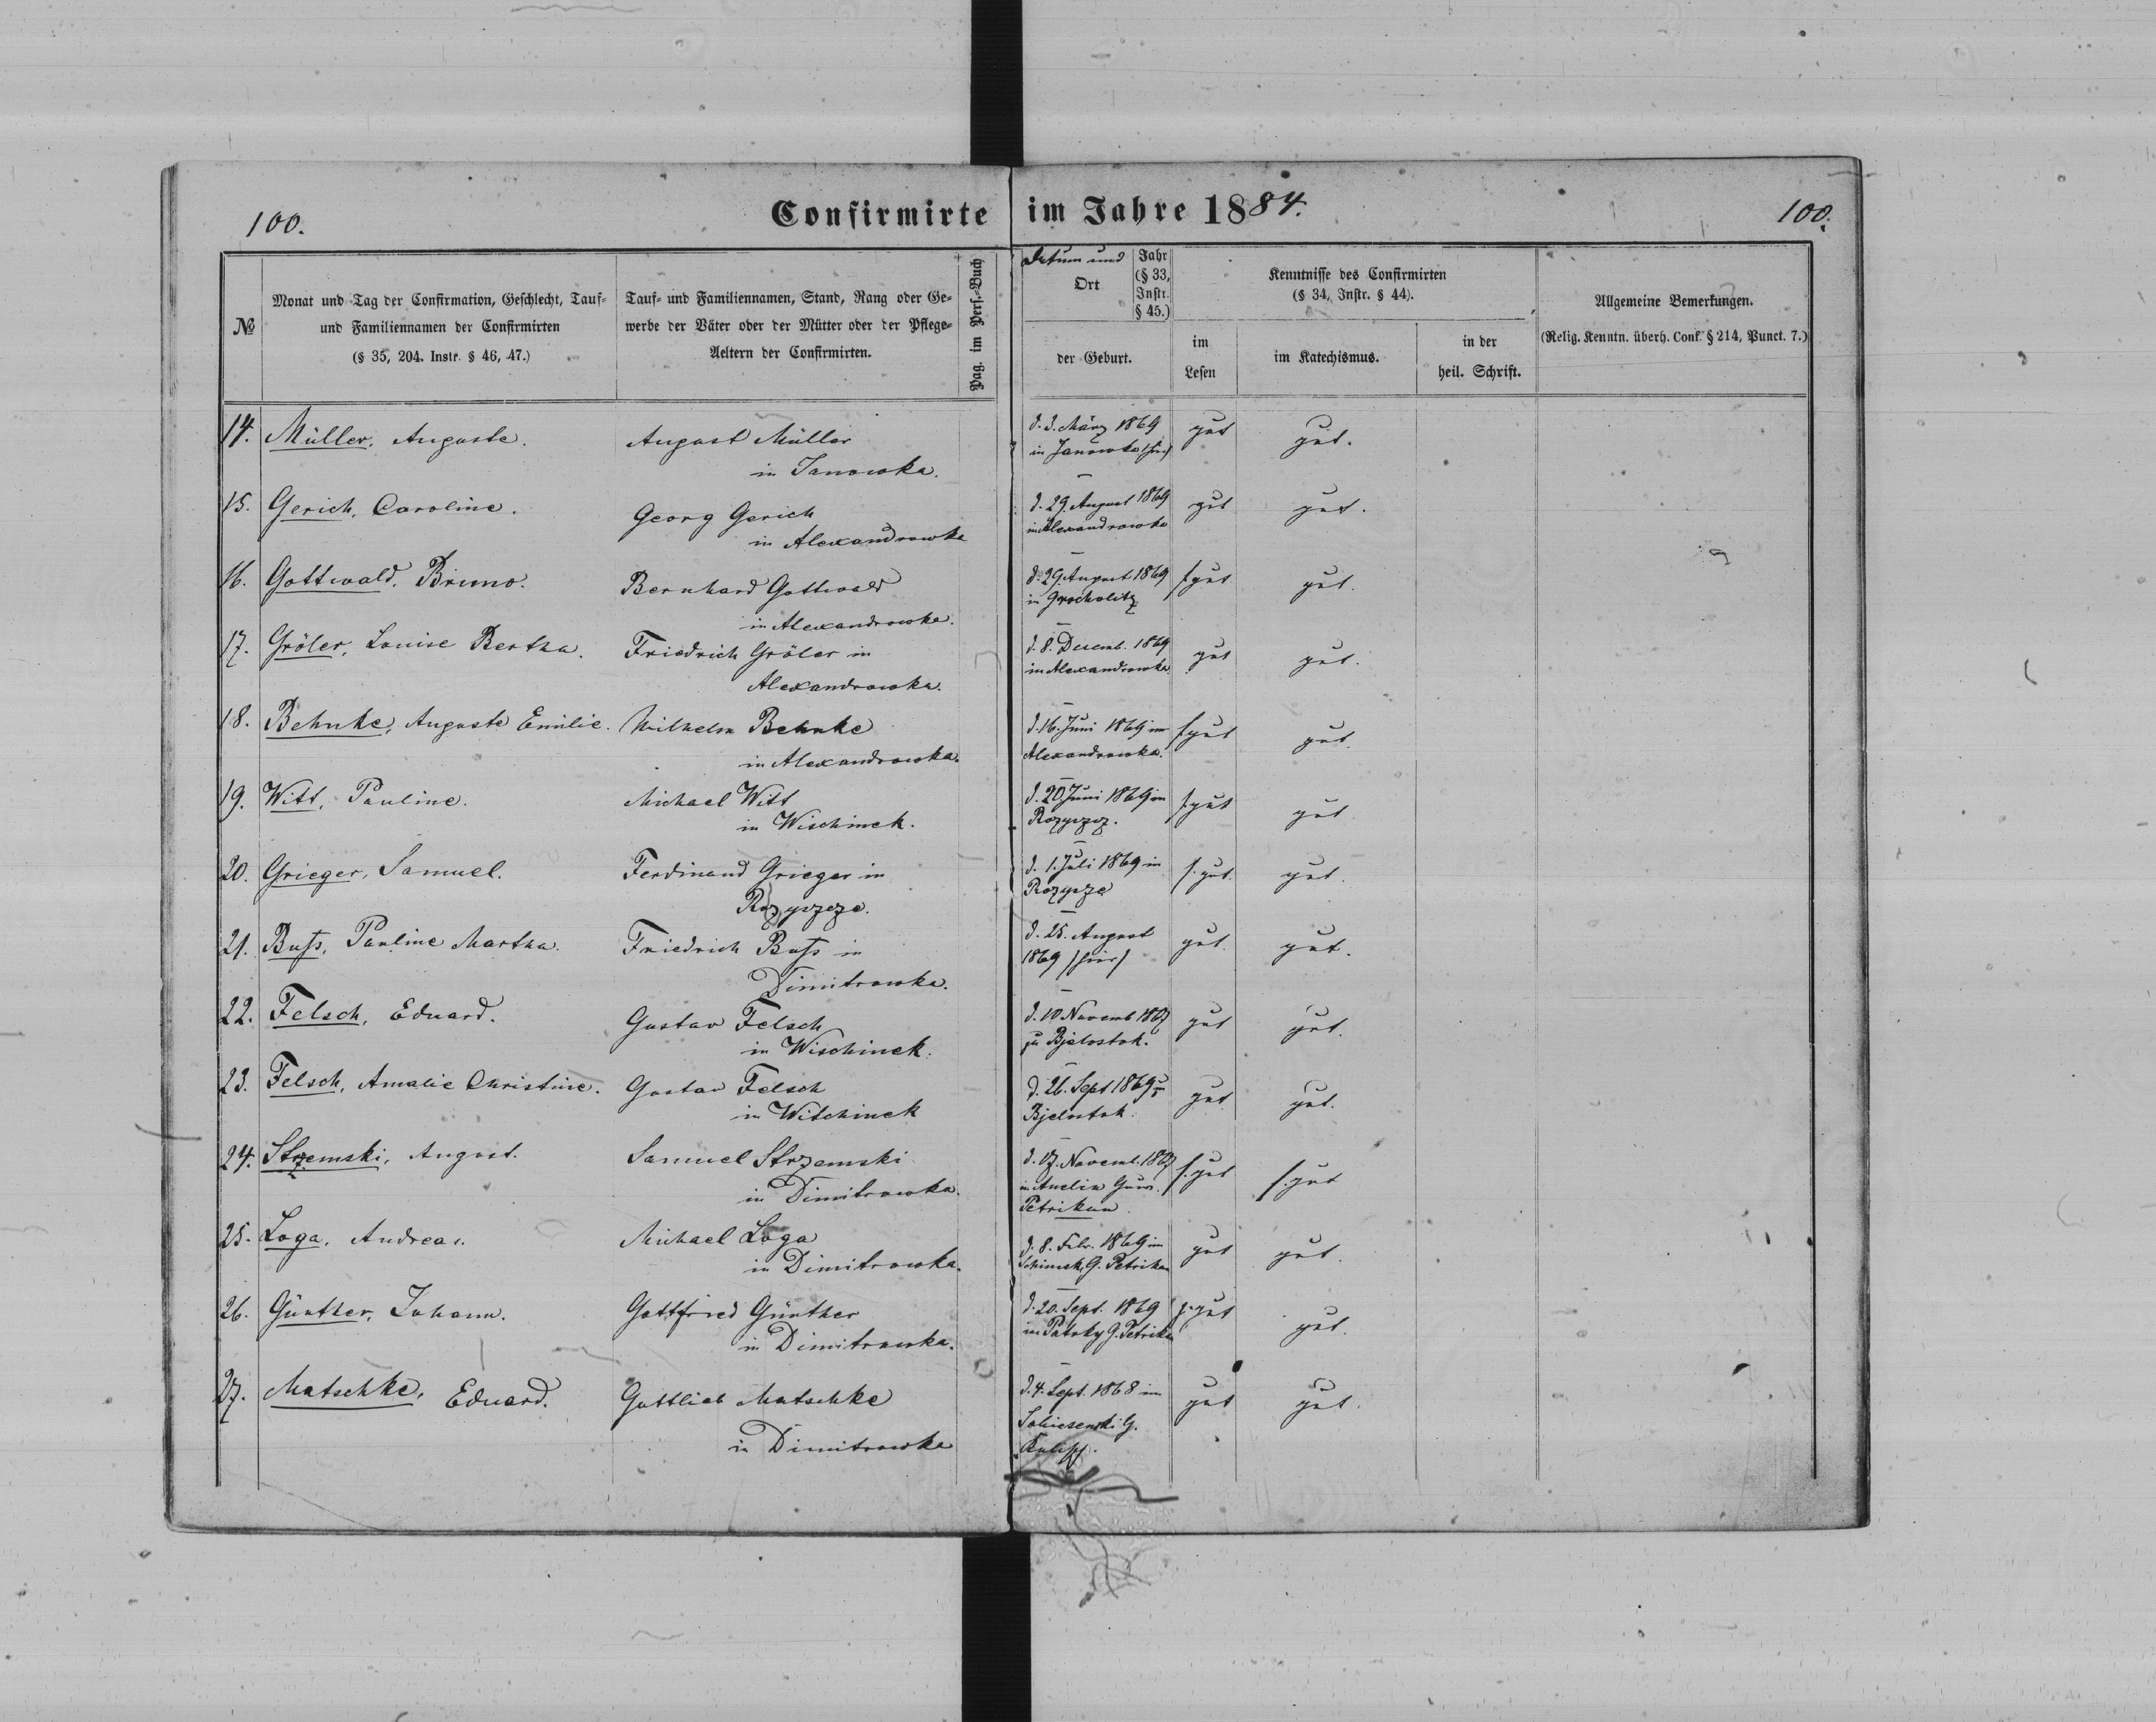 100.
Confirmirte im Jahre 1884.
100.
№
Monat und Tag der Confirmation, Geschlecht, Tauf-
und Familiennamen der Confirmirten
(§ 35, 204. Instr. § 46, 47.)
Tauf- und Familiennamen, Stand, Rang oder Ge-
werbe der Väter oder der Mütter oder der Pflege-
Aeltern der Confirmirten.
Pag. im Pers.-Buch
Datum und
Ort
Jahr
(§ 33,
Instr.
§ 45.)
der Geburt.
Kenntnisse des Confirmirten
(§ 34, Instr. § 44).
im
Lesen
im Katechismus.
in der
heil. Schrift.
Allgemeine Bemerkungen.
(Relig. Kenntn. überh. Conf. § 214, Punct. 7.)
14. Müller, Auguste. August Müller d. 3. März 1869 gut gut.
in Janowka. in Janowka (hier)
15. Gerich, Caroline. Georg Gerich d. 29. August 1869 gut gut.
in Alexandrowka in Alexandrowka
16. Gottwald, Bruno. Bernhard Gottwald d. 29. August 1869 s. gut gut.
in Alexandrowka. in Grocholitz
17. Gröler, Louise Bertha. Friedrich Gröler in d. 8. Decemb. 1869 gut gut.
Alexandrowka. in Alexandrowka
18. Behnke, Auguste Emilie. Wilhelm Behnke d. 16. Juni 1869 in s. gut gut.
in Alexandrowka. Alexandrowka.
19. Witt, Pauline. Michael Witt d. 20 Juni 1869 in s. gut gut
in Wischinek. Rozyszcz.
20. Grieger, Samuel. Ferdinand Grieger in d. 1. Juli 1869 in s. gut. gut.
Rozyszcze. Rozysze
21. Buss, Pauline Martha. Friedrich Buss in d. 25. August gut gut.
Dimitrowka. 1869 (hier)
22. Felsch, Eduard. Gustav Felsch d. 10 Novemb 1867 gut gut.
in Wischinek. zu Bjelostok.
23. Felsch, Amalie Christine. Gustav Felsch d. 26. Sept 1869 gut gut.
in Witschinek Bjelostok.
24. Strzemski, August. Samuel Strzemski d. 17. Novemb. 1867 s. gut s. gut
in Dimitrowka. in Anelin Guw.
Petrikau
25. Loga, Andreas. Michael Loga d. 8. Febr. 1869 in gut gut.
in Dimitrowka. G. Petrikau
26. Günther, Johann. Gottfried Günther d. 20. Sept. 1869 s. gut gut.
in Dimitrowka. in Patoky G. Petrikau
27. Matschke, Eduard. Gottlieb Matschke d. 4. Sept. 1868 in gut gut.
in Dimitrowka G.